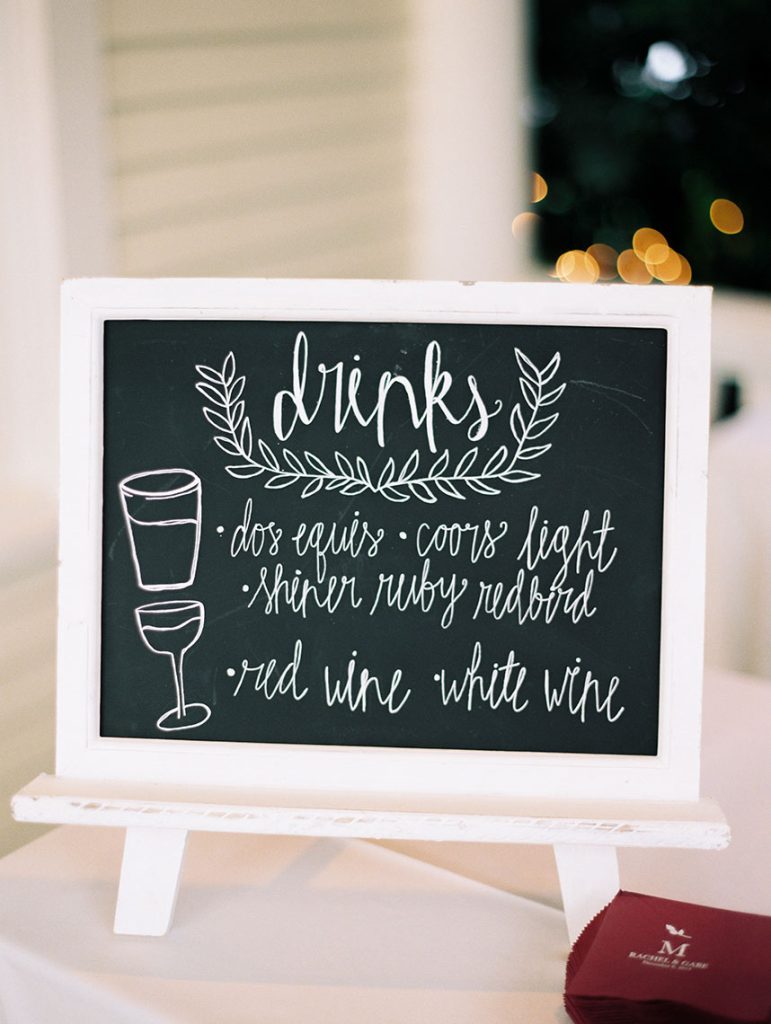 drinks
·dos equis ·coors light
·shiner ruby redbird
·red wine ·white wine
M
RACHEL & GABE